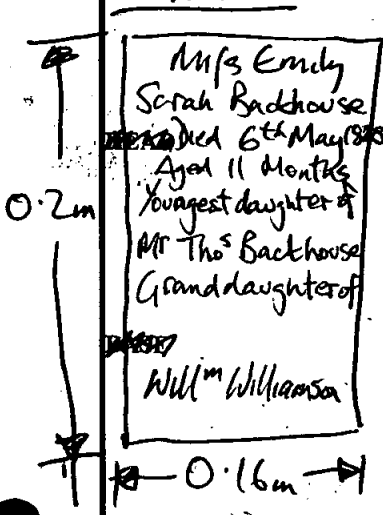 Miss Emily
Sarah Backhouse
Died 6th May 1828
Aged 11 Months
Youngest daughter of
Mr Thos Backhouse
Granddaughter of
Willm Williamson
0.2m
0.16m